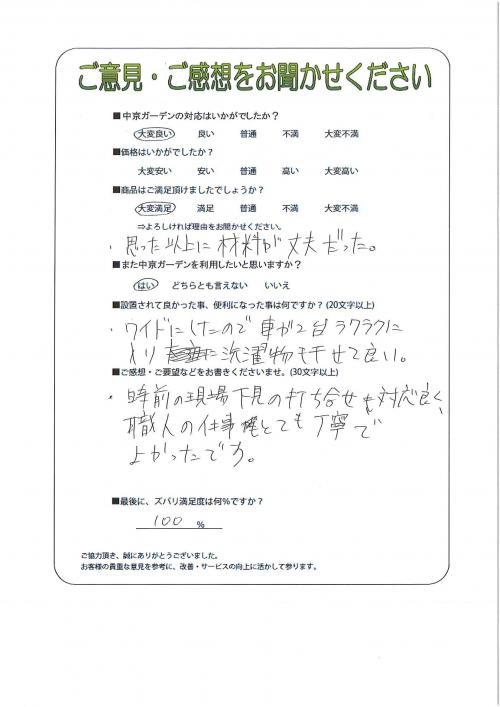 ご意見・ご感想をお聞かせください
■中京ガーデンの対応はいかがでしたか?
大変良い 良い 普通 不満 大変不満
■価格はいかがでしたか?
大変安い 安い 普通 高い 大変高い
■商品はご満足頂けましたでしょうか?
大変満足 満足 普通 不満 大変不満
⇒よろしければ理由をお聞かせください。
・思った以上に材料が丈夫だった。
■また中京ガーデンを利用したいと思いますか?
はい どちらとも言えない いいえ
■設置されて良かった事、便利になった事は何ですか?(20文字以上)
・ワイドにしたので車が2台ラクラクに
入り 洗濯物も干せて良い。
■ご感想・ご要望などをお書きくださいませ。(30文字以上)
・事前の現場下見の打ち合せも対応良く、
職人の仕事 とても丁寧で
よかったです。
■最後に、ズバリ満足度は何%ですか?
100 %
ご協力頂き、誠にありがとうございました。
お客様の貴重な意見を参考に、改善・サービスの向上に活かして参ります。